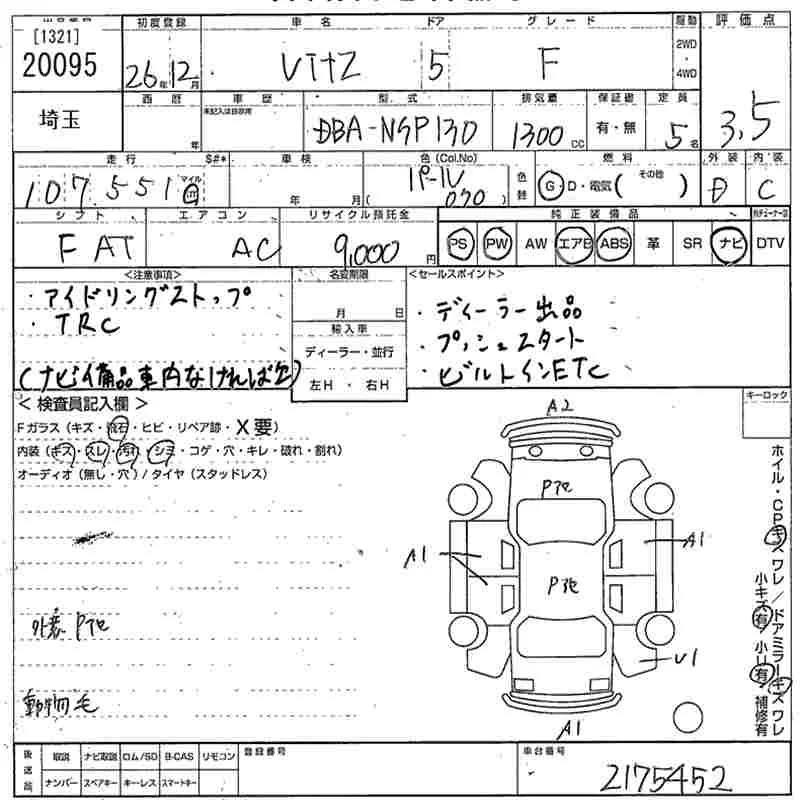 [1321]
20095
初度登録
車名
ドア
グレード
駆動
評価点
26年12月
Vitz
5
F
2WD
・
4WD
埼玉
西暦
車歴
型式
排気量
保証書
定員
年
未記入は自家用
DBA-NSP130
1300cc
有・無
5名
3.5
走行
S#*
車検
色(Col.No)
燃料
外装
内装
107,551
マイル
km
年 月
パール
(070)
色替
G・D・電気(その他 )
D
C
シフト
エアコン
リサイクル預託金
純正装備品
FAT
AC
9,000円
PS
PW
AW
エアB
ABS
革
SR
ナビ
DTV
<注意事項>
名変期限
<セールスポイント>
・アイドリングストップ
・TRC
月 日
・ディーラー出品
輸入車
・プッシュスタート
ディーラー・並行
(ナビ備品車内なければ欠)
左H・右H
・ビルトインETC
<検査員記入欄>
キーロック
Fガラス(キズ・飛石・ヒビ・リペア跡・X要)
内装(キズ・スレ・汚れ・シミ・コゲ・穴・キレ・破れ・割れ)
オーディオ(無し・穴)/タイヤ(スタッドレス)
A2
P飛
A1
A1
P飛
U1
A1
外装P飛
動物毛
ホイル・CPキズワレ/ドアミラーキズワレ
小キズ有/小凹有・補修有
後送品
取説
ナビ取説
ロム/SD
B-CAS
リモコン
登録番号
車台番号
ナンバー
スペアキー
キーレス
スマートキー
2175452